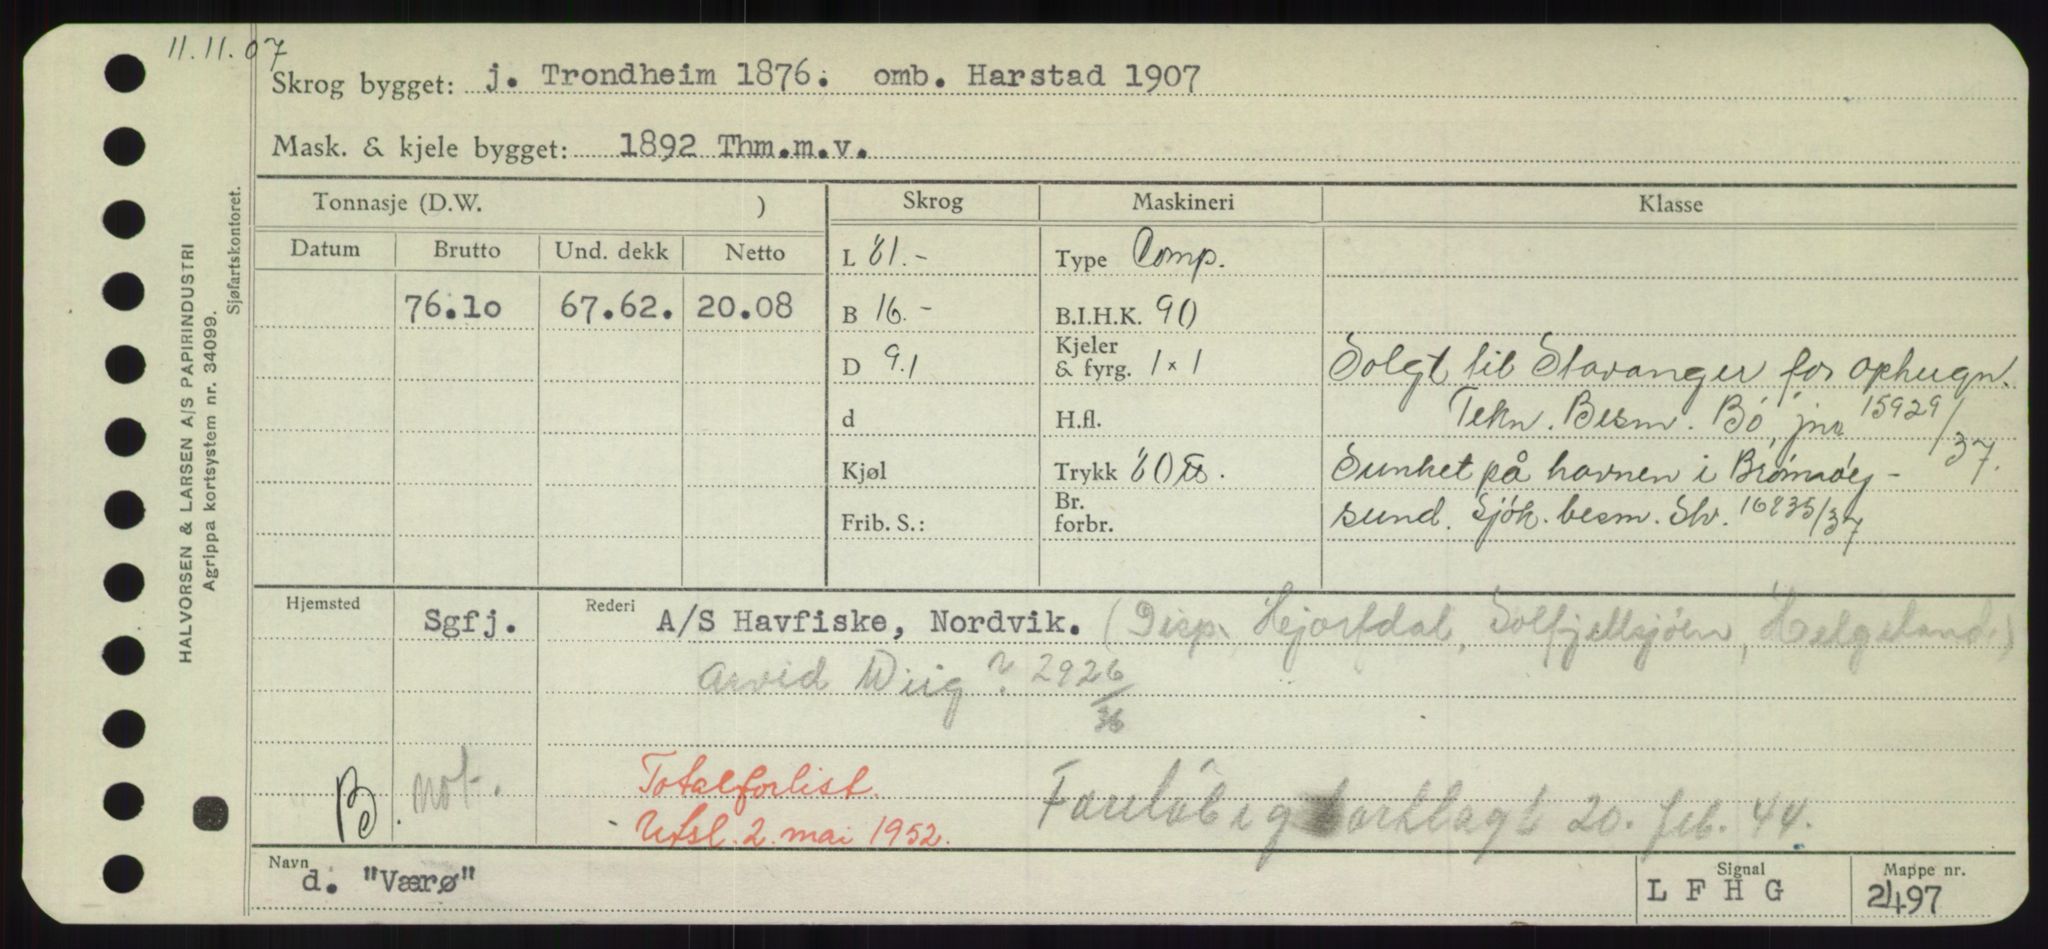 11.11.07
Skrog bygget: j. Trondheim 1876. omb. Harstad 1907
Mask. & kjele bygget: 1892 Thm.m.v.
Tonnasje (D.W. ) Skrog Maskineri Klasse
Datum Brutto Und. dekk Netto L 81.- Type Comp.
76.10 67.62. 20.08 B 16.- B.I.H.K. 90
D 9.1 Kjeler & fyrg. 1 x 1 Solgt til Stavanger for ophugn.
d H.fl. Tekn. Besm. Bö, jnr 15929/37.
Kjøl Trykk 80 lbs. Sunket på havnen i Brønnöy-
Frib. S.: Br. forbr. sund. Sjök. besm. Slv. 16835/37
Hjemsted Sgfj. Rederi A/S Havfiske, Nordvik. (Disp. Hjartdal, Solfjellsjöen, Helgeland.)
Arvid Wiig ? 2926/36
not. Totalforlist.
B. Utsl. 2. mai 1952. Foreløbig kortlagt 20. feb. 44.
Navn d. "Værø" Signal L F H G Mappe nr. 2497
HALVORSEN & LARSEN A/S PAPIRINDUSTRI
Agrippa kortsystem nr. 34099.
Sjøfartskontoret.